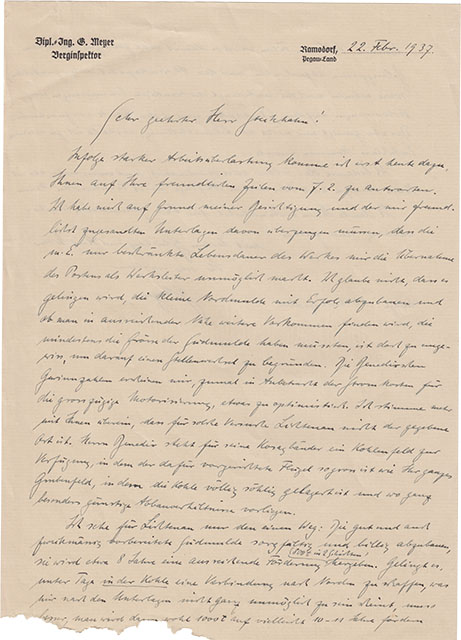 Dipl.-Ing. G. Meyer
Berginspektor
Ramsdorf, 22. Febr. 1937.
Pegau-Land
Sehr geehrter Herr !
Infolge starker Arbeitsüberlastung komme ich erst heute dazu,
Ihnen auf Ihre freundlichen Zeilen vom 7. 2. zu antworten.
Ich habe mich auf Grund meiner Besichtigung und der mir freund-
lichst zugesandten Unterlagen davon überzeugen müssen, dass die
m. E. nur beschränkte Lebensdauer des Werkes mir die Übernahme
des Postens als Werksleiter unmöglich macht. Ich glaube nicht, dass es
gelingen wird, die kleine Nordmulde mit Erfolg abzubauen und
ob man in ausreichender Nähe weitere Vorkommen finden wird, die
mindestens die Größe der Südmulde haben müssten, ist doch zu unge-
wiss, um darauf einen Stellenwechsel zu begründen. Die
Gewinnzahlen erscheinen mir, zumal in Anbetracht der Stromkosten für
die grosszügige Motorisierung, etwas zu optimistisch. Ich stimme auch
mit Ihnen überein, dass für solche Versuche nicht der gegebene
Ort ist. Herrn steht für seine ein Kohlenfeld zur
Verfügung, in dem der dafür vorgerichtete Flügel so gross ist wie Ihr ganzes
Grubenfeld, in dem die Kohle völlig söhlig gelagert ist und wo ganz
besonders günstige Abbauverhältnisse vorliegen.
Ich sehe für nur den einen Weg: Die gut und auch
fachmännig vorbereitete Südmulde sorgfältig und billig abzubauen,
sie wird etwa 8 Jahre eine ausreichende Förderung hergeben. Gelingt es,
unter Tage in der Kohle eine Verbindung nach Norden zu schaffen, was
mir nach den Unterlagen nicht ganz unmöglich zu sein scheint, umso
besser, man wird dann wohl auf vielleicht 10-11 Jahre fördern